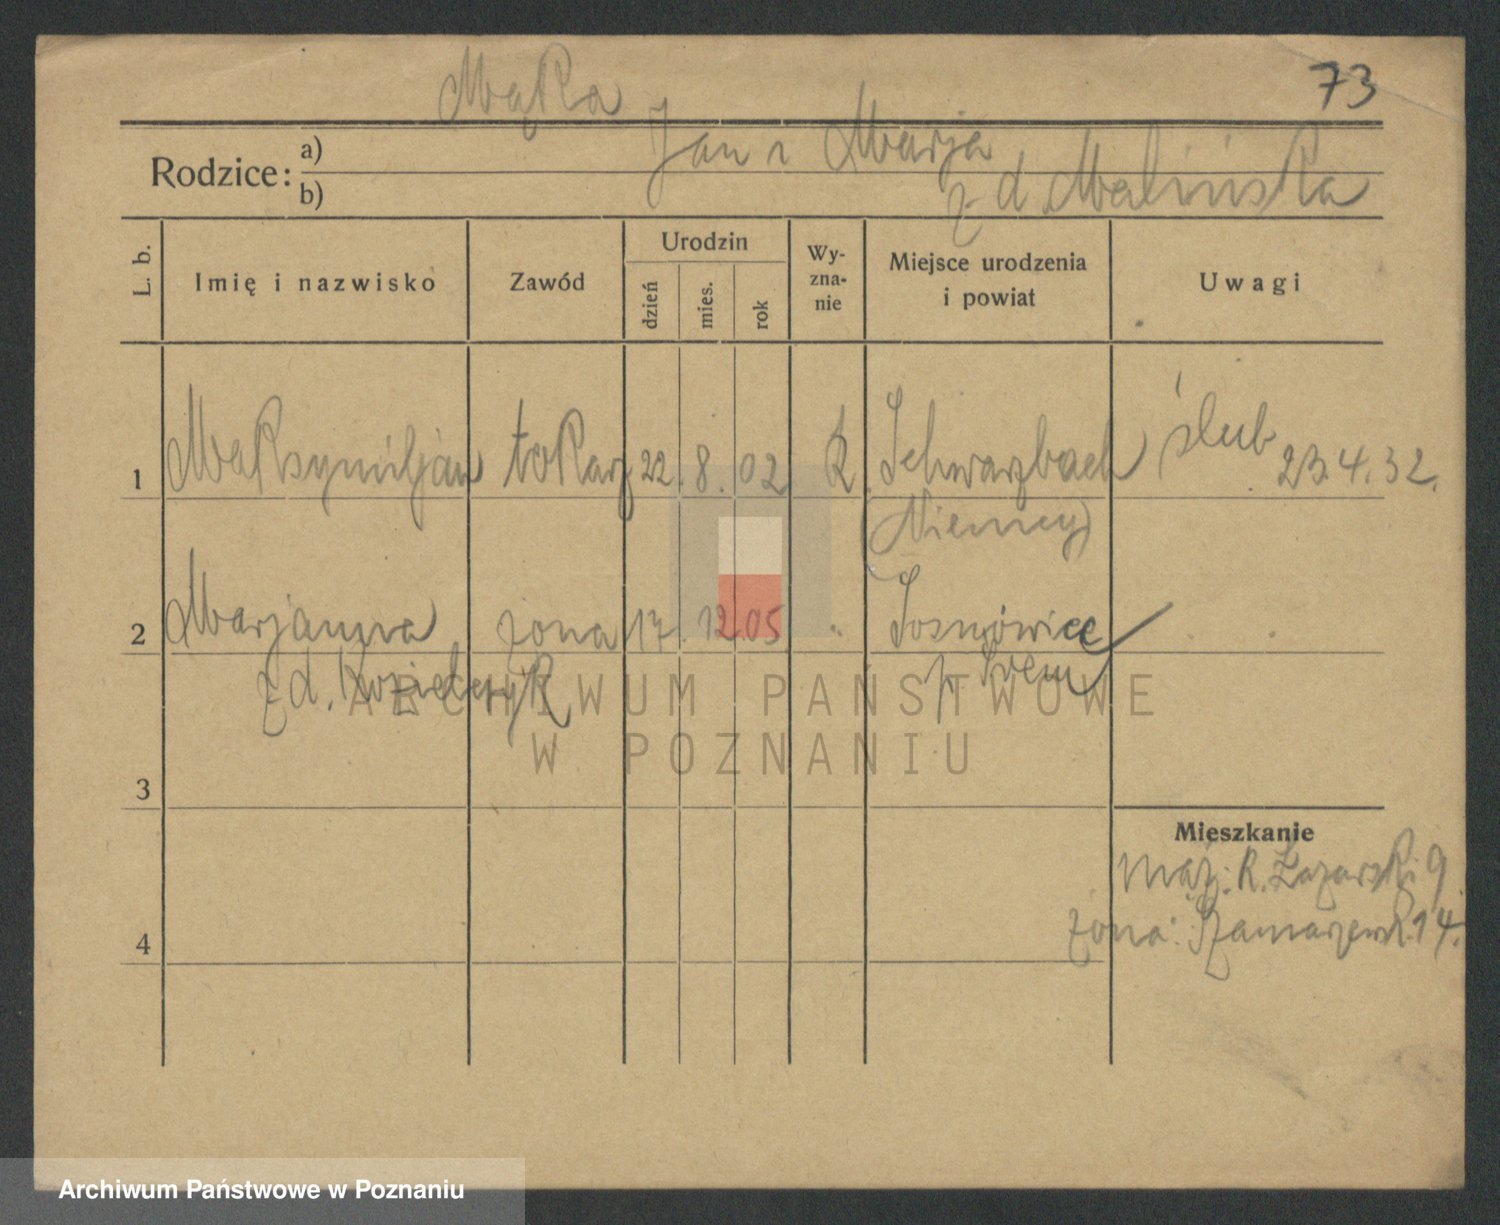 73
Mąka
Rodzice: a) Jan i Marja
b) z d. Malińska
L. b.
Imię i nazwisko
Zawód
Urodzin
dzień
mies.
rok
Wy-
zna-
nie
Miejsce urodzenia
i powiat
Uwagi
1 Maksymiljan tokarz 22. 8. 02 k Schwarzbach ślub 23.4.32.
(Niemcy)
2 Marjanna żona 17. 12. 05 „
z d. p. Śrem
3
4
Mieszkanie
mąż: R. Łazarski 9
żona: Szamarzewsk. 14.
ARCHIWUM PAŃSTWOWE
W POZNANIU
Archiwum Państwowe w Poznaniu